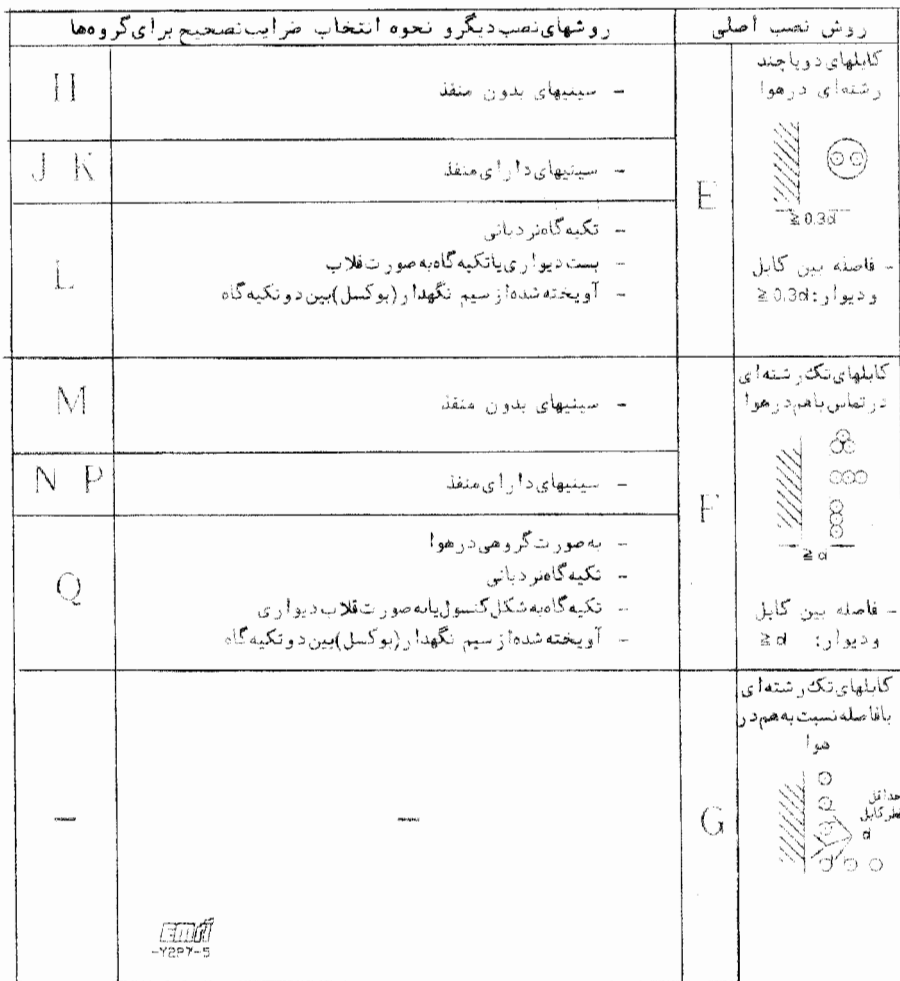 روش نصب اصلی
روشهای نصب دیگر و نحوه انتخاب ضرایب تصحیح برای گروه‌ها
کابلهای دو یا چند
رشته‌ای در هوا
≧ 0.3d
- فاصله بین کابل
و دیوار: ≧ 0.3d
E
- سینیهای بدون منفذ
H
- سینیهای دارای منفذ
J K
- تکیه گاه نردبانی
- بست دیواری یا تکیه گاه به صورت قلاب
- آویخته شده از سیم نگهدار (بوکسل) بین دو تکیه گاه
L
کابلهای تک رشته‌ای
در تماس با هم در هوا
≧ d
- فاصله بین کابل
و دیوار: ≧ d
F
- سینیهای بدون منفذ
M
- سینیهای دارای منفذ
N P
- به صورت گروهی در هوا
- تکیه گاه نردبانی
- تکیه گاه به شکل کنسول یا به صورت قلاب دیواری
- آویخته شده از سیم نگهدار (بوکسل) بین دو تکیه گاه
Q
کابلهای تک رشته‌ای
با فاصله نسبت به هم در
هوا
حداقل
قطر کابل
d
G
-
-
-Y2P7-5